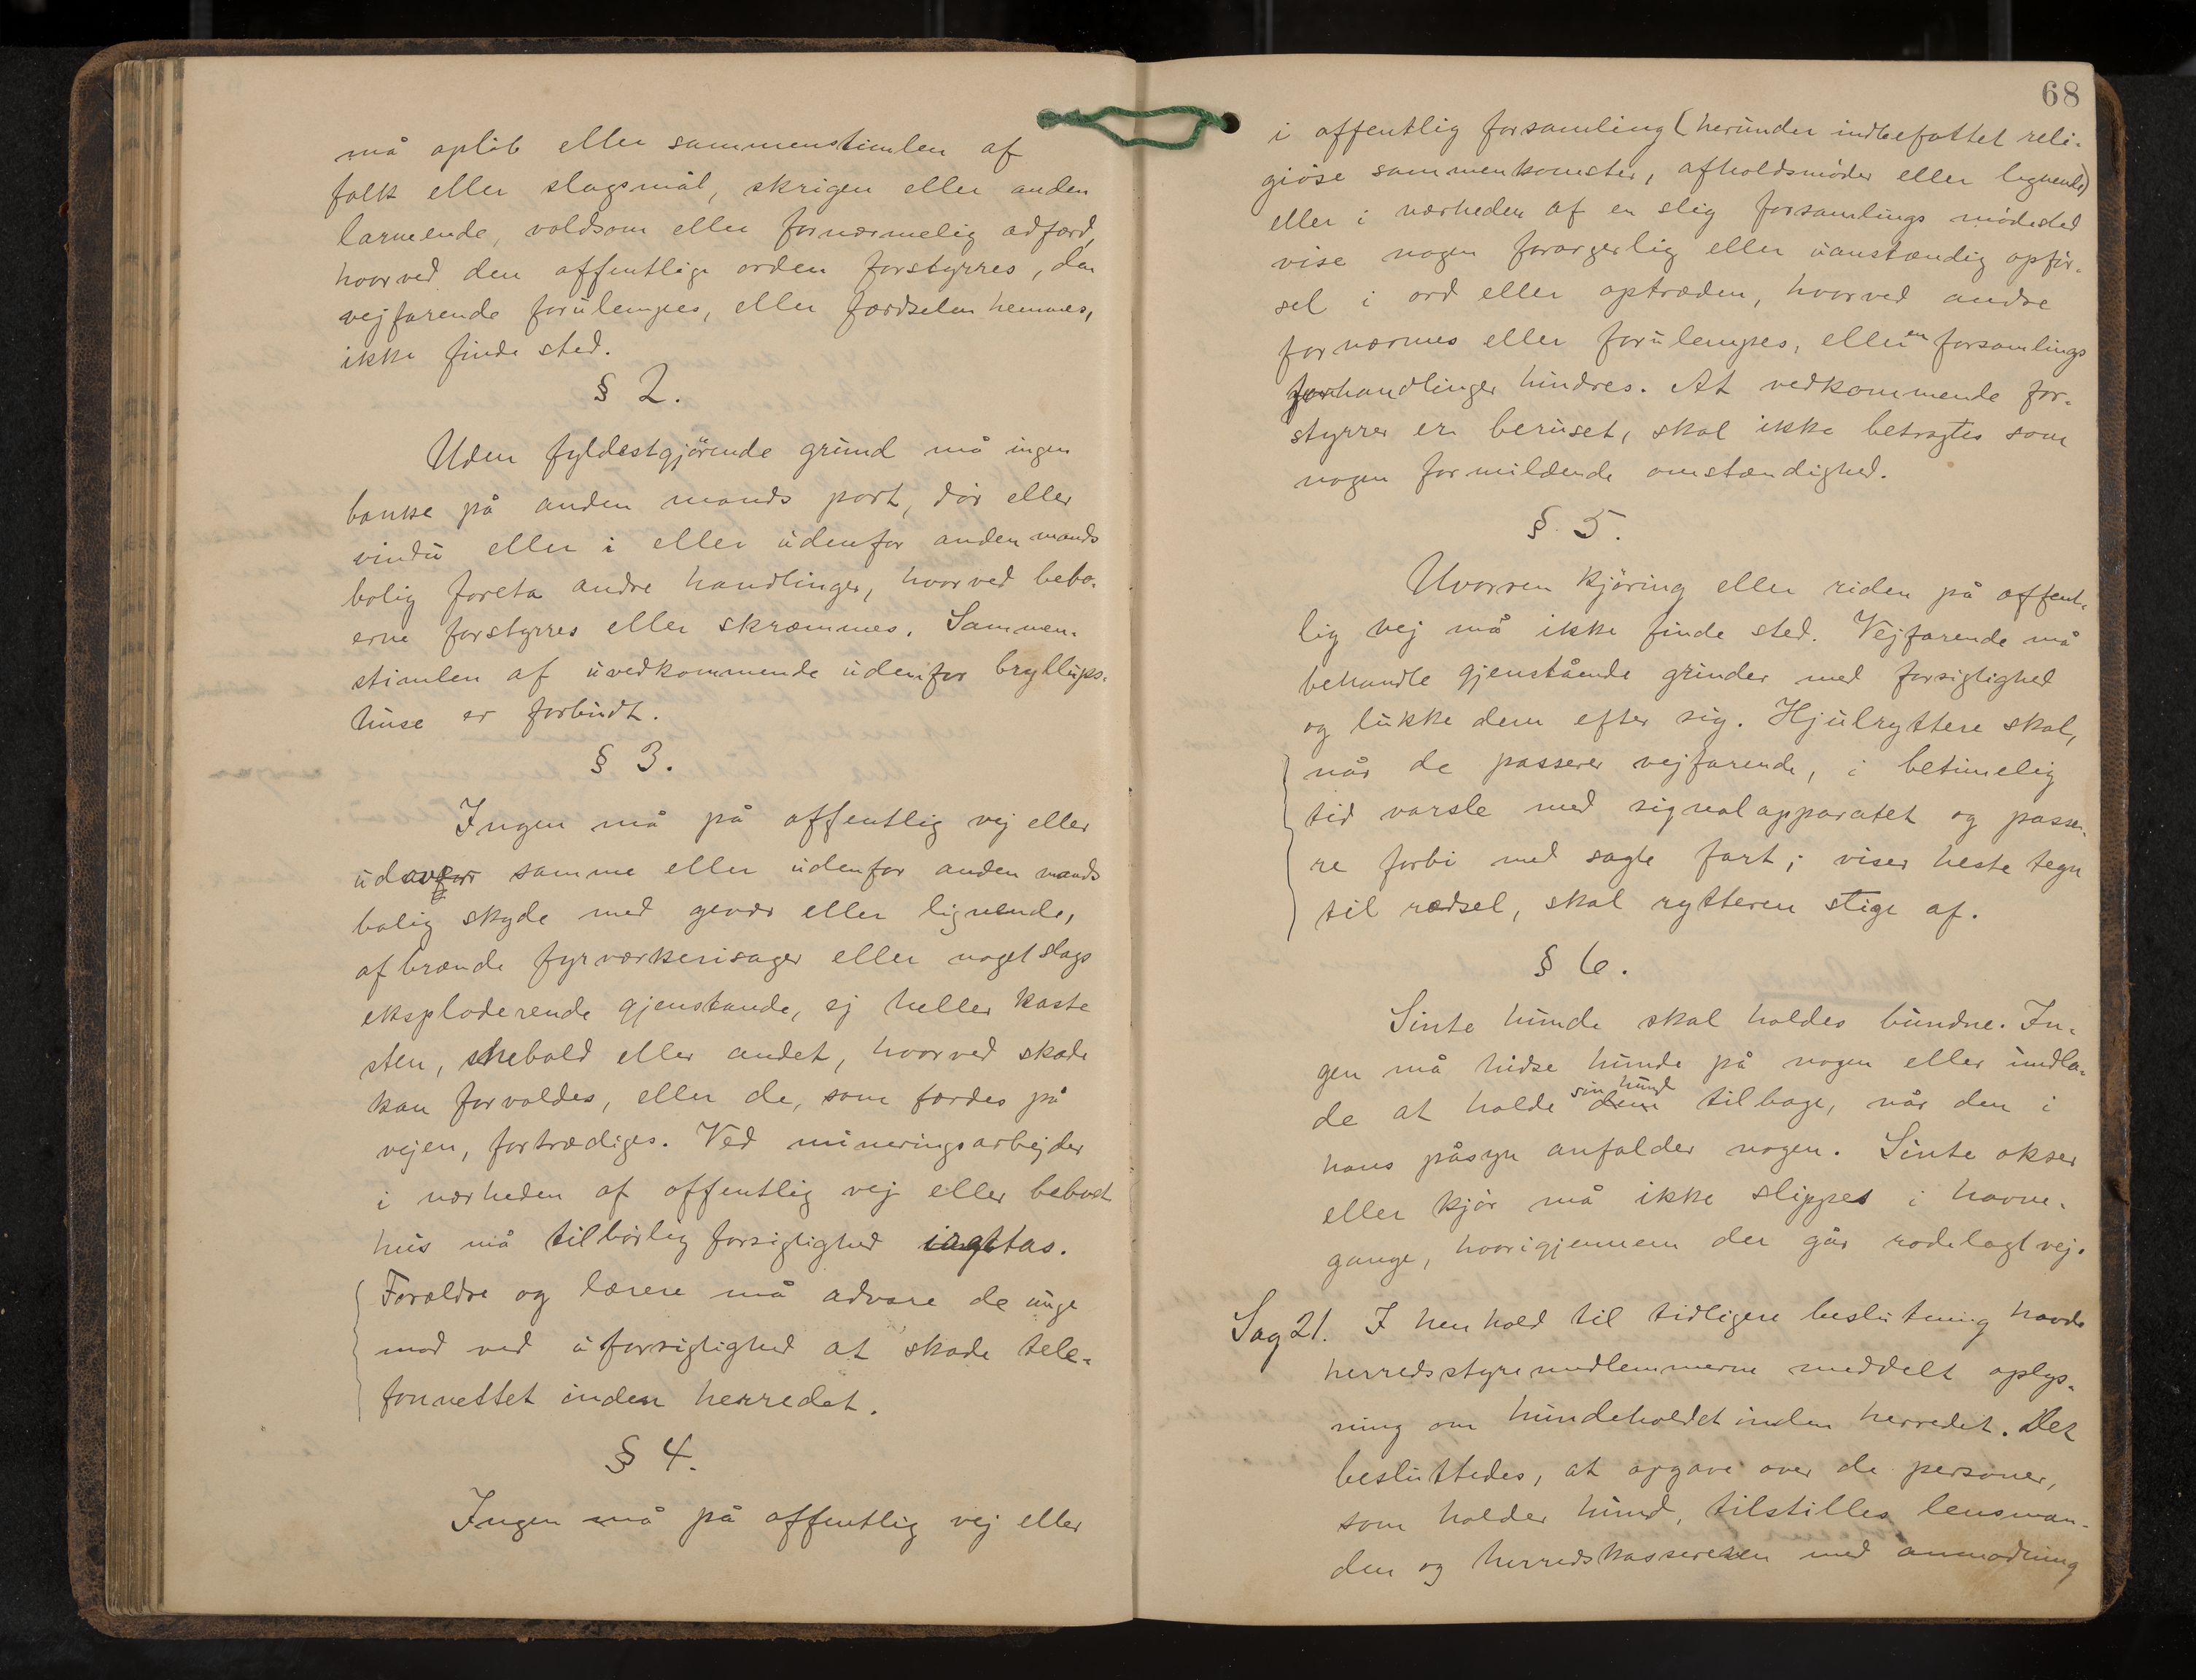 må opløb eller sammenstimlen af
folk eller slagsmål, skrigen eller anden
larmende, voldsom eller fornærmelig adfærd,
hvorved den offentlige orden forstyrres, den
vejfarende forulempes, eller færdselen hemmes,
ikke finde sted.
§ 2.
Uden fyldestgjørende grund må ingen
banke på anden mands port, dør eller
vindu eller i eller udenfor anden mands
bolig foreta andre handlinger, hvorved bebo-
erne forstyrres eller skræmmes. Sammen-
stimlen af uvedkommende udenfor bryllups-
huse er forbudt.
§ 3.
Ingen må på offentlig vej eller
udover samme eller udenfor anden mands
bolig skyde med gevær eller lignende,
afbrænde fyrværkerisager eller noget slags
eksploderende gjenstande, ej heller kaste
sten, snebold eller andet, hvorved skade
kan forvoldes, eller de, som færdes på
vejen, fortrædiges. Ved mineringsarbejder
i nærheden af offentlig vej eller beboet
hus må tilbørlig forsigtighed iagttas.
Forældre og lærere må advare de unge
mod ved uforsigtighed at skade tele-
fonnettet inden herredet.
§ 4.
Ingen må på offentlig vej eller
68
i offentlig forsamling (herunder indbefattet reli-
giøse sammenkomster, afholdsmøder eller lignende)
eller i nærheden af en slig forsamlings mødested
vise nogen forargerlig eller uanstændig opfør-
sel i ord eller optræden, hvorved andre
fornærmes eller forulempes, eller en forsamlings
forhandlinger hindres. At vedkommende for-
styrrer er beruset, skal ikke betragtes som
nogen formildende omstændighed.
§ 5.
Uvorren kjøring eller riden på offent-
lig vej må ikke finde sted. Vejfarende må
behandle gjenstående grinder med forsigtighed
og lukke dem efter sig. Hjulryttere skal,
når de passerer vejfarende, i betimelig
tid varsle med signalapparatet og passe-
re forbi med sagte fart; viser heste tegn
til rædsel, skal rytteren stige af.
§ 6.
Sinte hunde skal holdes bundne. In-
gen må hidse hunde på nogen eller undla-
de at holde sin hund tilbage, når den i
hans påsyn anfalder nogen. Sinte okser
eller kjør må ikke slippes i havne-
gange, hvorigjennem der går rodelagt vej.
Sag 21. I henhold til tidligere beslutning havde
herredsstyremedlemmerne meddelt oplys-
ning om hundeholdet inden herredet. Det
besluttedes, at opgave over de personer,
som holder hund, tilstilles lensman-
den og herredskassereren med anmodning